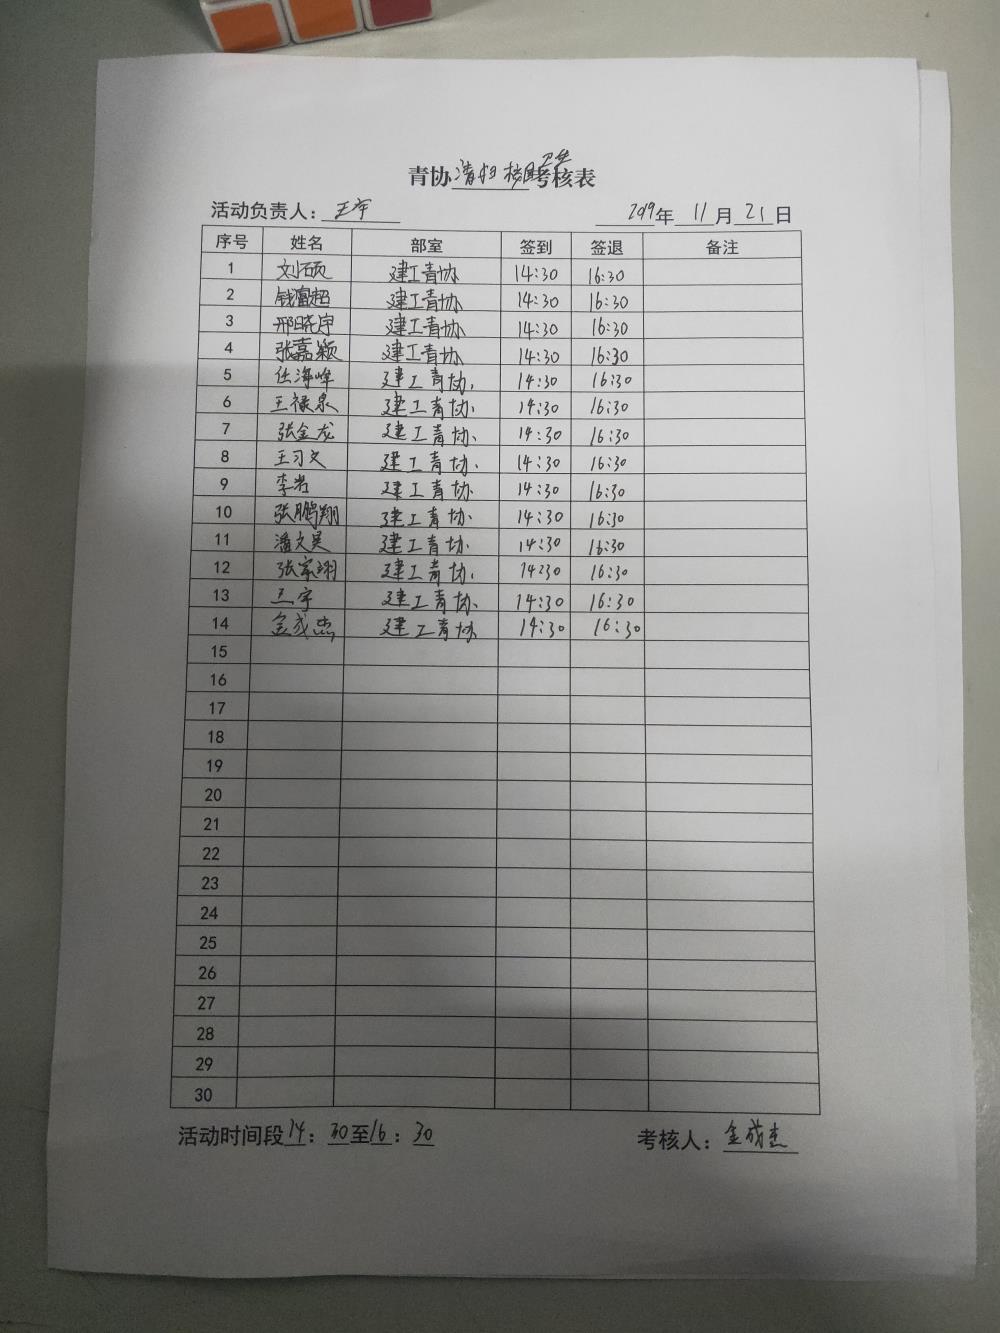 青协清扫校园卫生考核表
活动负责人：王宇 2019年11月21日
序号 姓名 部室 签到 签退 备注
1 刘硕 建工青协 14:30 16:30
2 钱富超 建工青协 14:30 16:30
3 邢晓宇 建工青协 14:30 16:30
4 张嘉颖 建工青协 14:30 16:30
5 任海峰 建工青协 14:30 16:30
6 王禄泉 建工青协 14:30 16:30
7 张金龙 建工青协 14:30 16:30
8 王习文 建工青协 14:30 16:30
9 李岩 建工青协 14:30 16:30
10 张鹏翔 建工青协 14:30 16:30
11 潘文昊 建工青协 14:30 16:30
12 张家翊 建工青协 14:30 16:30
13 王宇 建工青协 14:30 16:30
14 金成杰 建工青协 14:30 16:30
15
16
17
18
19
20
21
22
23
24
25
26
27
28
29
30
活动时间段14：30至16：30 考核人：金成杰